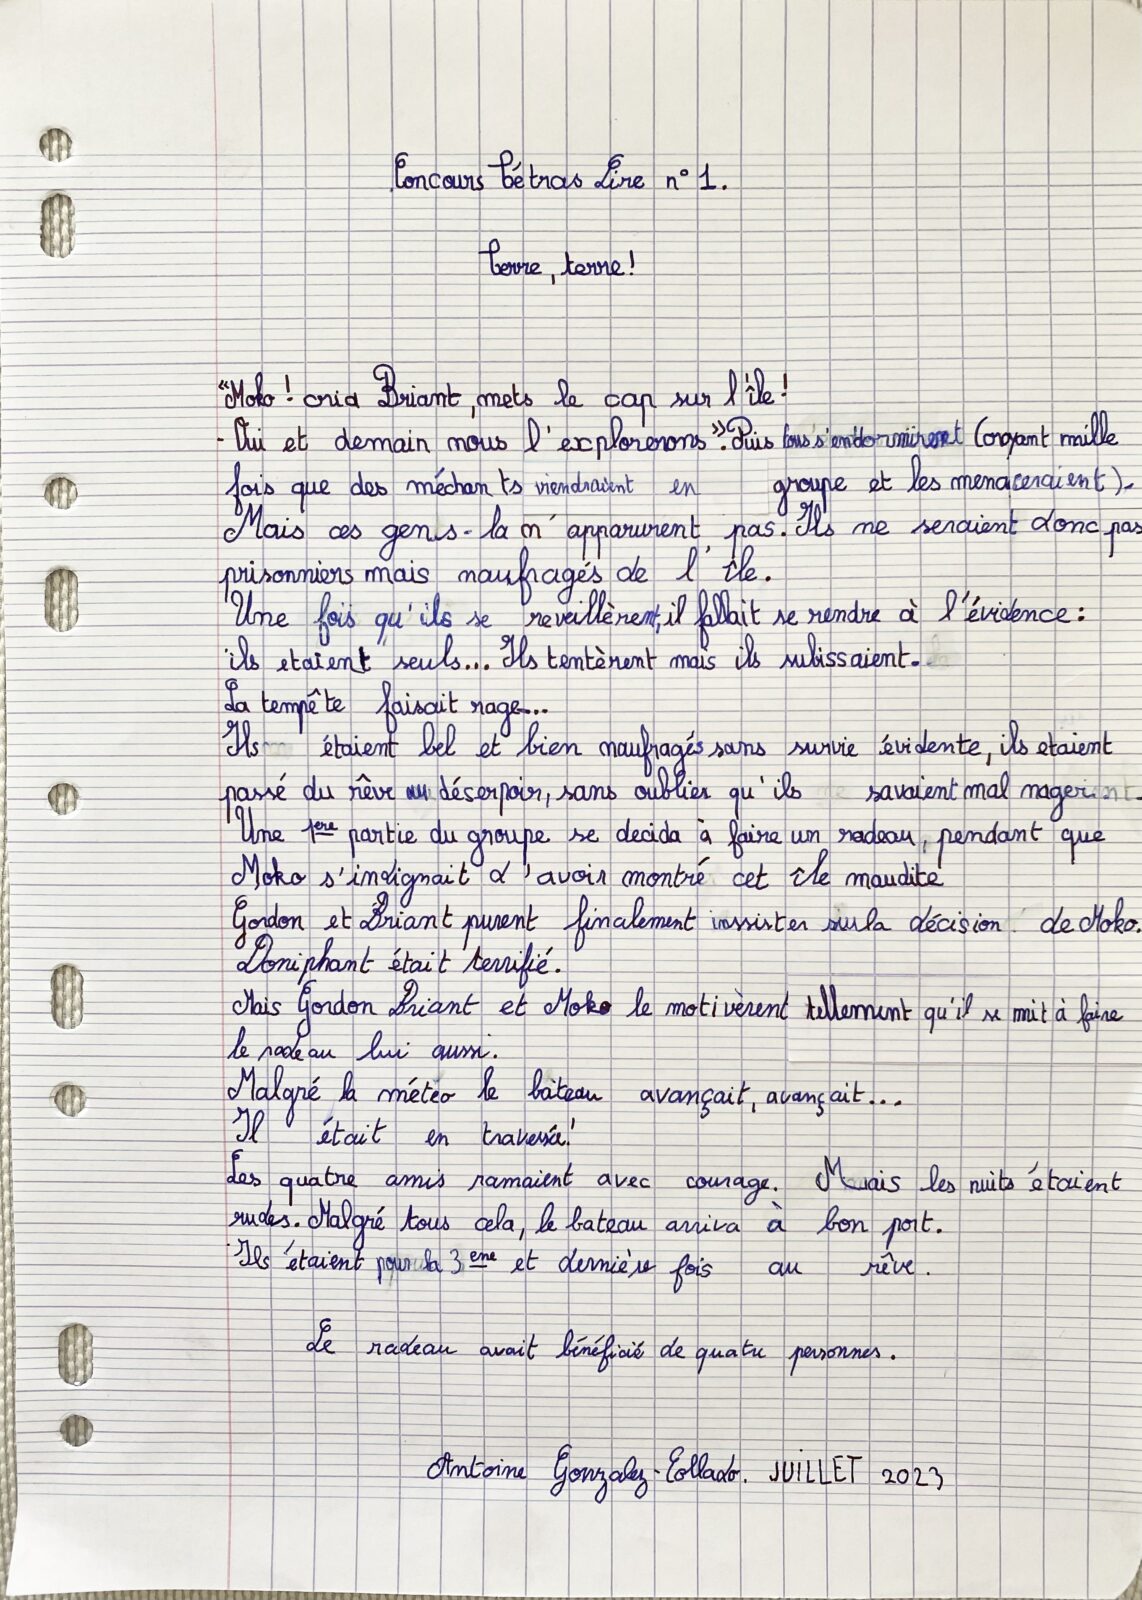 Concours Tétras Lire n° 1.
Terre, terre !
"Moko ! cria Briant, mets le cap sur l'île !
- Oui et demain nous l'explorerons". Puis tous s'endormirent (croyant mille
fois que des méchants viendraient en groupe et les menaceraient).
Mais ces gens-là n'apparurent pas. Ils ne seraient donc pas
prisonniers mais naufragés de l'île.
Une fois qu'ils se reveillèrent, il fallait se rendre à l'évidence :
ils etaient seuls... Ils tentèrent mais ils subissaient.
La tempête faisait rage...
Ils étaient bel et bien naufragés sans survie évidente, ils etaient
passé du rêve au déserpoir, sans oublier qu'ils savaient mal nager
Une 1ere partie du groupe se decida à faire un radeau, pendant que
Moko s'indignait d'avoir montré cet île maudite
Gordon et Briant purent finalement inssister sur la décision de Moko.
Doniphant était terrifié.
Mais Gordon Briant et Moko le motivèrent tellement qu'il se mit à faire
le radeau lui aussi.
Malgré la météo le bâteau avançait, avançait...
Il était en traversée !
Les quatre amis ramaient avec courage. Mais les nuits étaient
rudes. Malgré tous cela, le bateau arriva à bon port.
Ils étaient pour la 3eme et dernière fois au rêve.
Le radeau avait bénéficié de quatre personnes.
Antoine Gonzalez-Collado. JUILLET 2023